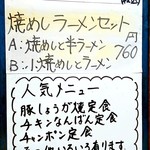 焼めしラーメンセット
A:焼めしと半ラーメン
B:小焼めしとラーメン
760円
人気メニュー
豚しょうが焼定食
チキンなんばん定食
チャンポン定食